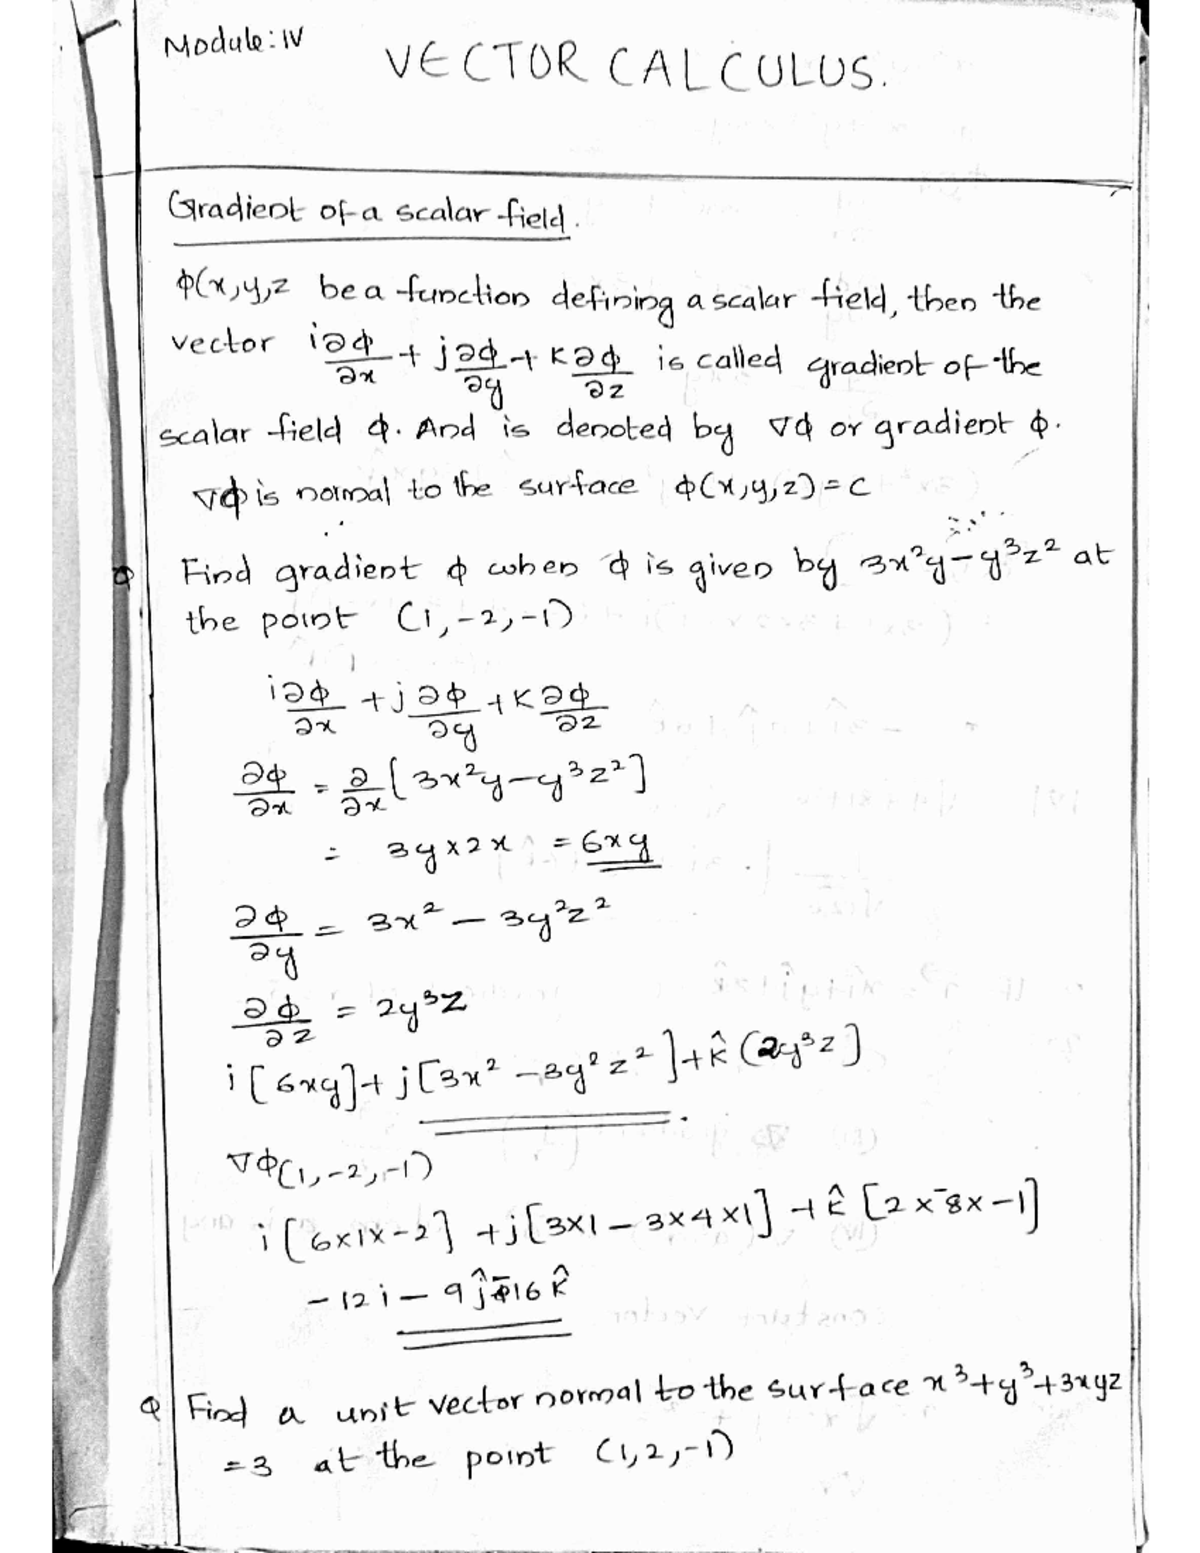 Module: IV
VECTOR CALCULUS.
Gradient of a scalar field.
ϕ(x,y,z be a function defining a scalar field, then the
vector i∂ϕ/∂x + j∂ϕ/∂y + k∂ϕ/∂z is called gradient of the
scalar field ϕ. And is denoted by ∇ϕ or gradient ϕ.
∇ϕ is normal to the surface ϕ(x,y,z) = c
Q Find gradient ϕ when ϕ is given by 3x²y - y³z² at
the point (1,-2,-1)
i∂ϕ/∂x + j∂ϕ/∂y + k∂ϕ/∂z
∂ϕ/∂x = ∂/∂x [3x²y - y³z²]
= 3y × 2x = 6xy
∂ϕ/∂y = 3x² - 3y²z²
∂ϕ/∂z = 2y³z
i[6xy] + j[3x² - 3y²z²] + k̂(2y³z]
∇ϕ(1,-2,-1)
i[6×1×-2] + j[3×1 - 3×4×1] + k̂[2×-8×-1]
-12i - 9ĵ - 16k̂
Q Find a unit vector normal to the surface x³+y³+3xyz
=3 at the point (1,2,-1)